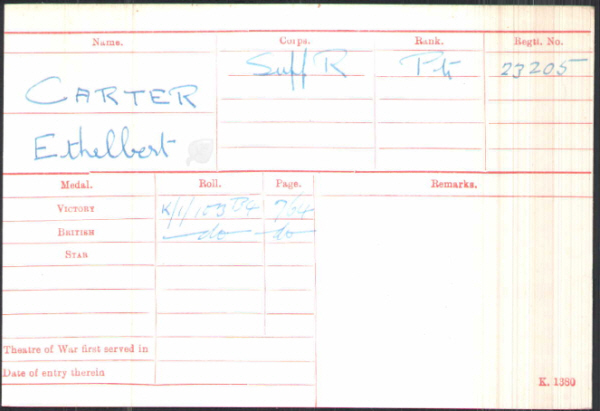 Name. Corps. Rank. Regtl. No.
CARTER Suff R Pte 23205
Ethelbert
Medal. Roll. Page. Remarks.
VICTORY K/1/103 B4 764
BRITISH do do
STAR
Theatre of War first served in
Date of entry therein
K. 1380